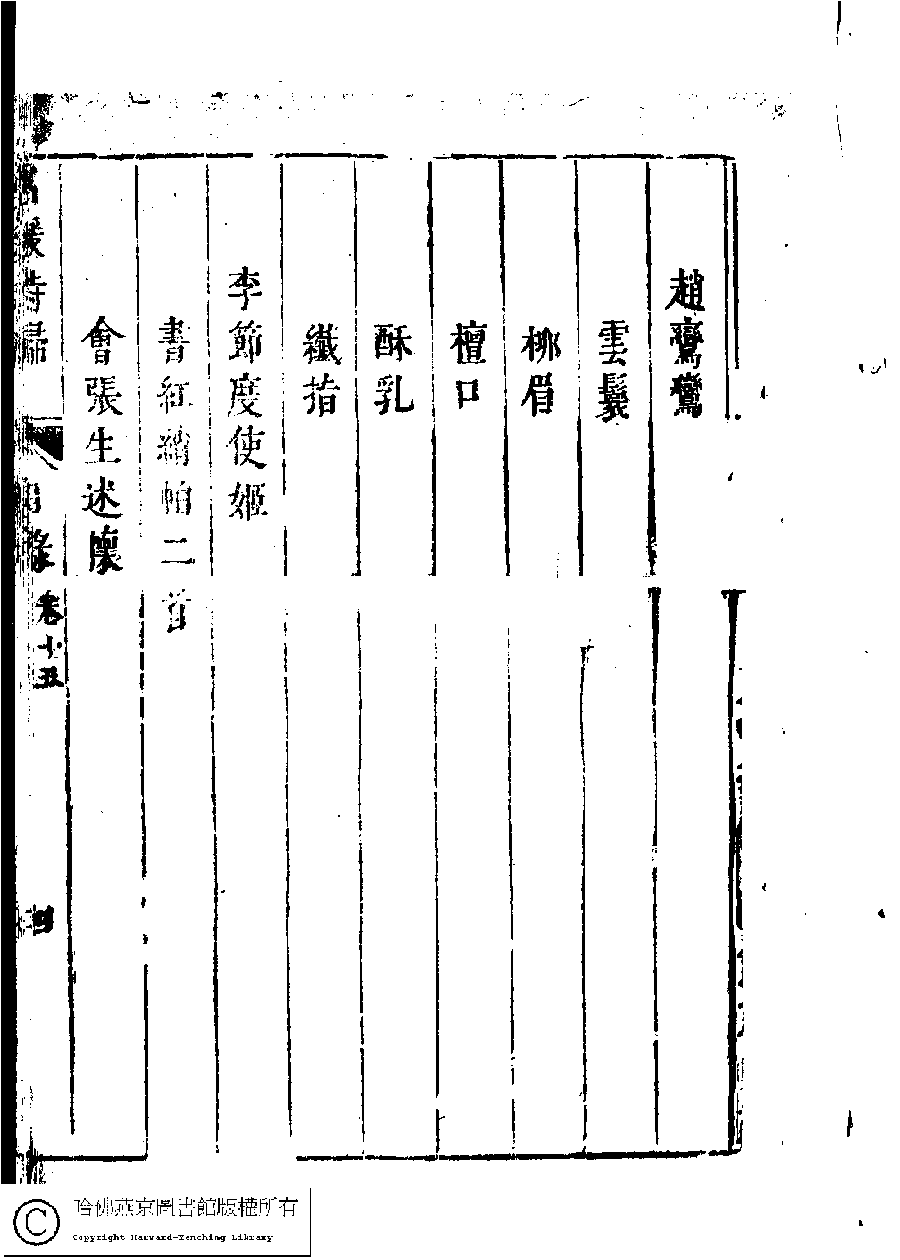 趙鸞鸞
雲鬟
柳眉
檀口
酥乳
纖指
李節度使姬
書紅綃帕二首
會張生述懷
名媛詩歸
目錄
卷十五
四
哈佛燕京圖書館版權所有
Copyright Harvard-Yenching Library